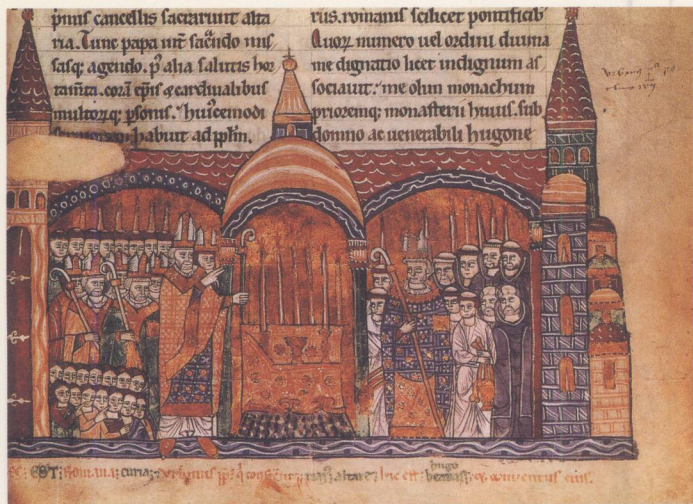 pinus cancellis sacrarunt alta
ria. Tunc papa int sac̄ndo mis
sasq; agendo. p̄ alia salutis hor
tam̄ta. corā ep̄is & cardinalibus
multorq; p̄sonis. huicemodi
habuit ad pplm̄.
rius. romanis scilicet pontificib
Quorꝝ numero uel ordini diuina
me dignatio licet indignum as
sociauit. me olim monachum
prioremq; monasterii huius. sub
domno ac uenerabili hugone
EST: Romana: curia: urbanus altare: hic est: hugo abbas: conuentus eius.